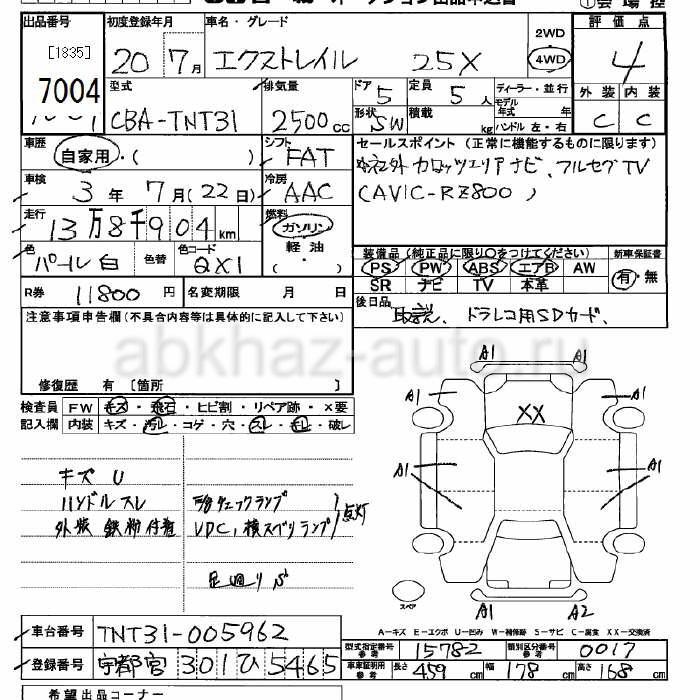 出品番号
[1835]
7004
初度登録年月
20年 7月
車名・グレード
エクストレイル 25X
2WD
4WD
評価点
4
外装 内装
C C
型式
CBA-TNT31
排気量
2500cc
ドア
5
定員
5人
形状
SW
積載
kg
ディーラー・並行
モデル年式 年
ハンドル 左・右
車歴
自家用・( )
シフト
FAT
車検
3年 7月(22日)
冷房
AAC
走行
13万8千904km
燃料
ガソリン
軽油
・( )
色
パール白
色替
色コード
QX1
セールスポイント(正常に機能するものに限ります)
カロッツエリアナビ、フルセグTV
(AVIC-RZ800)
装備品(純正品に限り○をつけてください)
PS PW ABS エアB AW
SR ナビ TV 本革
新車保証書
有・無
R券 11800円
名変期限 月 日
後日品
取説、ドラレコ用SDカード、
注意事項申告欄(不具合内容等は具体的に記入して下さい)
abkhaz-auto.ru
修復歴 有 [箇所 ]
検査員記入欄
FW キズ・飛石・ヒビ割・リペア跡・×要
内装 キズ・汚レ・コゲ・穴・スレ・キレ・破レ
キズ U
ハンドルスレ
外装 鉄粉付着
エンジンチェックランプ
VDC、横スベリランプ
点灯
足廻りサビ
A1 A1
A1 A1
XX
A1 A1
A1 A2
スペア
A-キズ E-エクボ U-凹み W-補修跡 S-サビ C-腐食 XX-交換済
車台番号
TNT31-005962
登録番号
宇都宮 301 ひ 5465
型式指定番号 参考
15782
類別区分番号 参考
0017
車庫証明用 参考
長さ 459cm
幅 178cm
高さ 168cm
希望出品コーナー